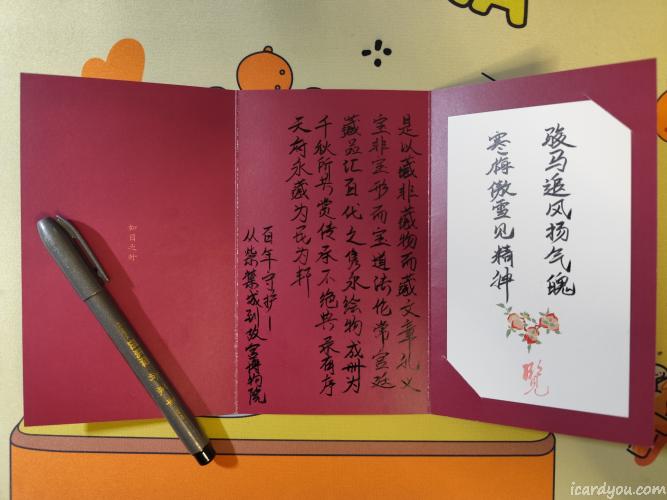 骏马追风扬气魄
寒梅傲雪见精神
覽
是以藏非藏物而藏文章礼义
宝非宝形而宝道法伦常宫廷
藏品汇百代之隽永绘物成册为
千秋所共赏传承不绝有序
天府永藏为民为邦
百年守护—
从紫禁城到故宫博物院
如日之升
icardyou.com